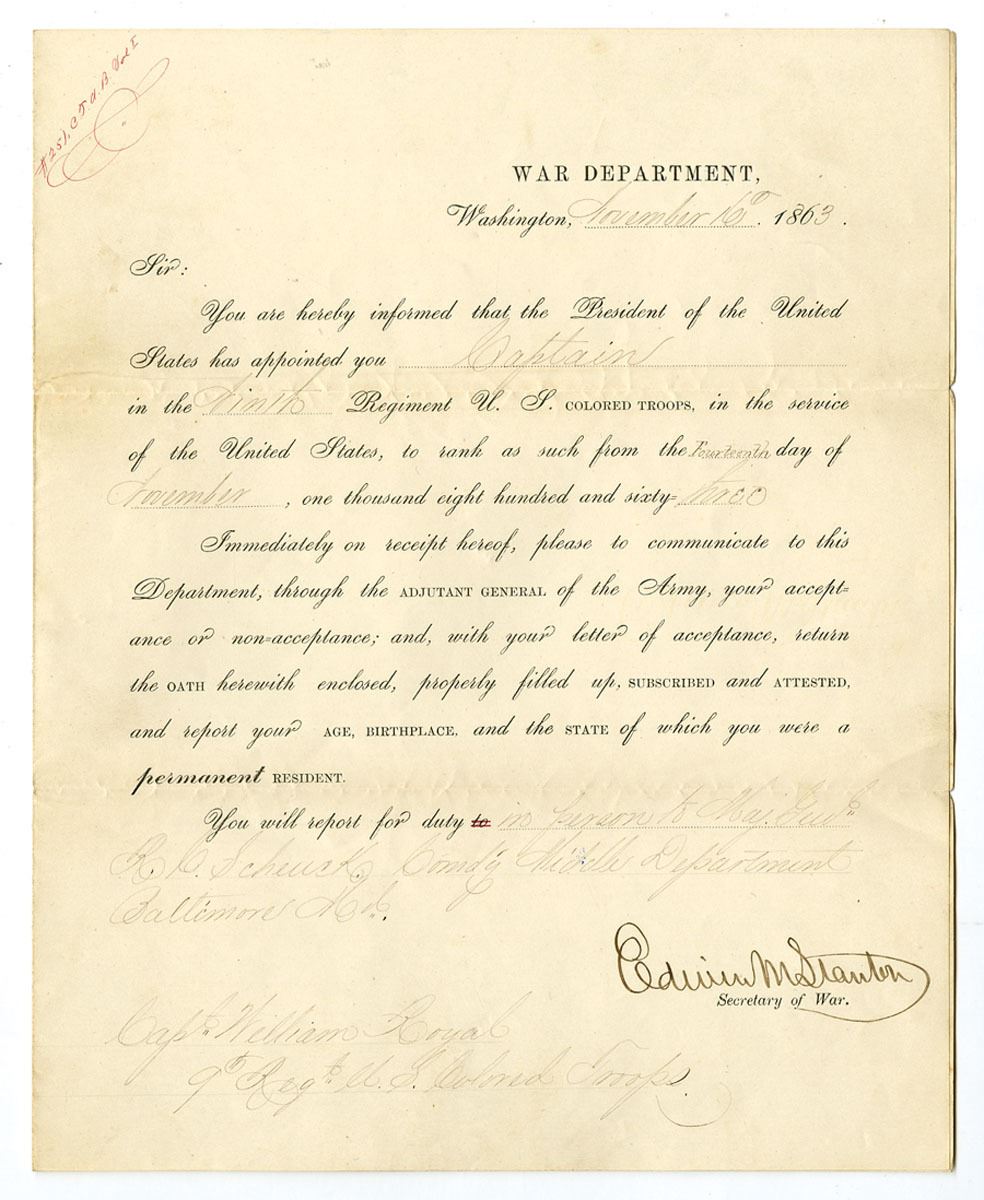 #251, C.T.A.B. Vol I
WAR DEPARTMENT,
Washington, November 16th. 1863.
Sir:
You are hereby informed that the President of the United
States has appointed you Captain
in the Ninth Regiment U. S. COLORED TROOPS, in the service
of the United States, to rank as such from the Fourteenth day of
November, one thousand eight hundred and sixty-three
Immediately on receipt hereof, please to communicate to this
Department, through the ADJUTANT GENERAL of the Army, your accept-
ance or non-acceptance; and, with your letter of acceptance, return
the OATH herewith enclosed, properly filled up, SUBSCRIBED and ATTESTED,
and report your AGE, BIRTHPLACE, and the STATE of which you were a
permanent RESIDENT.
You will report for duty to in person to Maj. Genl.
R. C. Schenck, Comd'g Middle Department
Baltimore Md.
Edwin M Stanton
Secretary of War.
Capt. William Royal
9th Regt. U. S. Colored Troops.